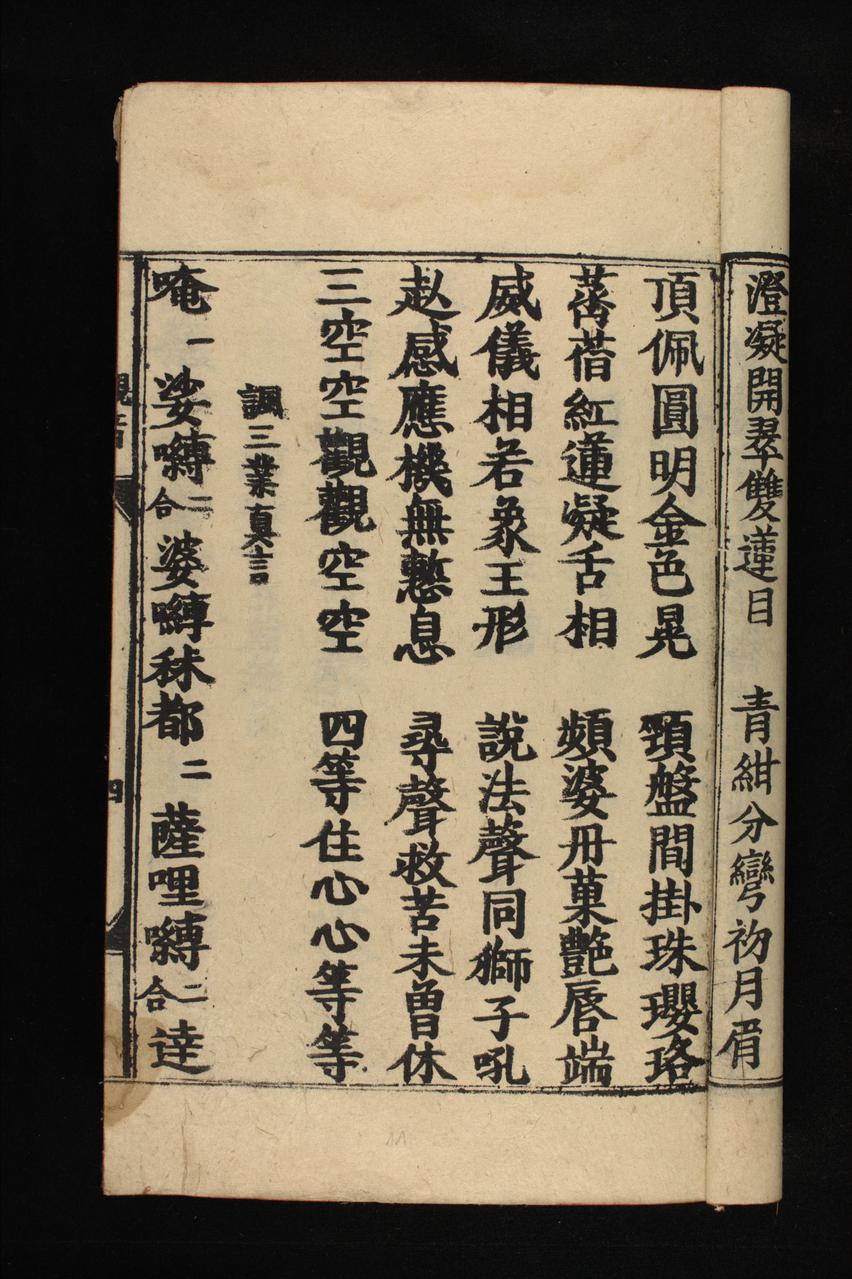 澄凝開翠雙蓮目 青紺分彎初月眉
頂佩圓明金色晃 頸盤間掛珠瓔珞
薝蔔紅蓮凝舌相 頻婆丹菓艷唇端
威儀相若象王形 說法聲同獅子吼
赴感應機無慙息 尋聲救苦未曾休
三空空觀觀空空 四等住心心等等
諷三業真言
唵一娑嚩二合婆嚩秫都二薩哩嚩二合達
四